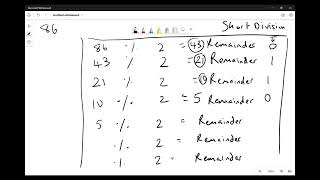 86 Short Division
86 ./. 2 = 43 Remainder 0
43 ./. 2 = 21 Remainder 1
21 ./. 2 = 10 Remainder 1
10 ./. 2 = 5 Remainder 0
5 ./. 2 = Remainder
./. 2 = Remainder
./. 2 = Remainder